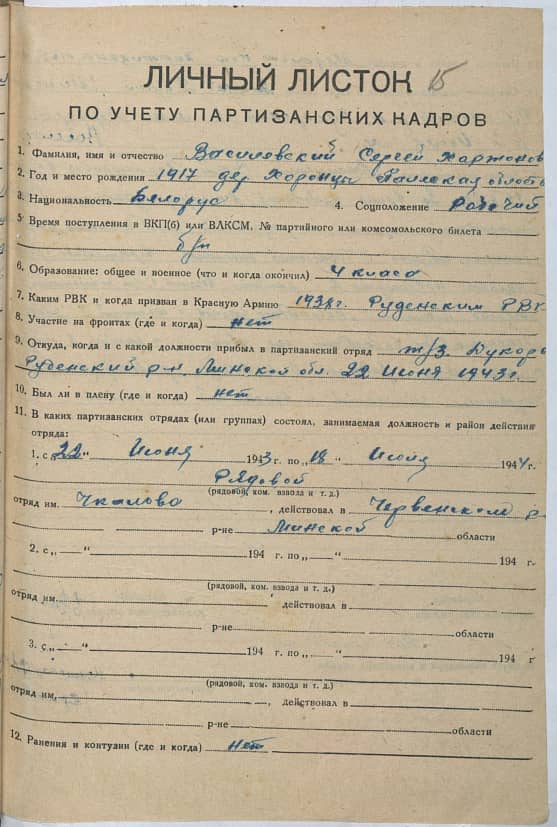 ЛИЧНЫЙ ЛИСТОК 15
ПО УЧЕТУ ПАРТИЗАНСКИХ КАДРОВ
1. Фамилия, имя и отчество Василевский Сергей
2. Год и место рождения 1917 дер.
3. Национальность Белорус 4. Соцположение Рабочий
5. Время поступления в ВКП(б) или ВЛКСМ, № партийного или комсомольского билета
б/п
6. Образование: общее и военное (что и когда окончил) 4 класа
7. Каким РВК и когда призван в Красную Армию Руденским РВК
8. Участие на фронтах (где и когда) нет
9. Откуда, когда и с какой должности прибыл в партизанский отряд
Руденский р-н. Минской обл. 22 Июня 1943 г.
10. Был ли в плену (где и когда) нет
11. В каких партизанских отрядах (или группах) состоял, занимаемая должность и район действия
отряда:
1. с „22“ Июня 1943 г. по „18“ Июля 1944 г.
Рядовой
(рядовой, ком. взвода и т. д.)
отряд им. Чкалова, действовал в Червенском р
р-не Минской области
2. с „ — “ 194 г. по „ — “ 194 г.
(рядовой, ком. взвода и т. д.)
отряд им. действовал в
р-не области
3. с „ — “ 194 г. по „ — “ 194 г
(рядовой, ком. взвода и т. д.)
отряд им, —, действовал в
р-не области
12. Ранения и контузии (где и когда) нет